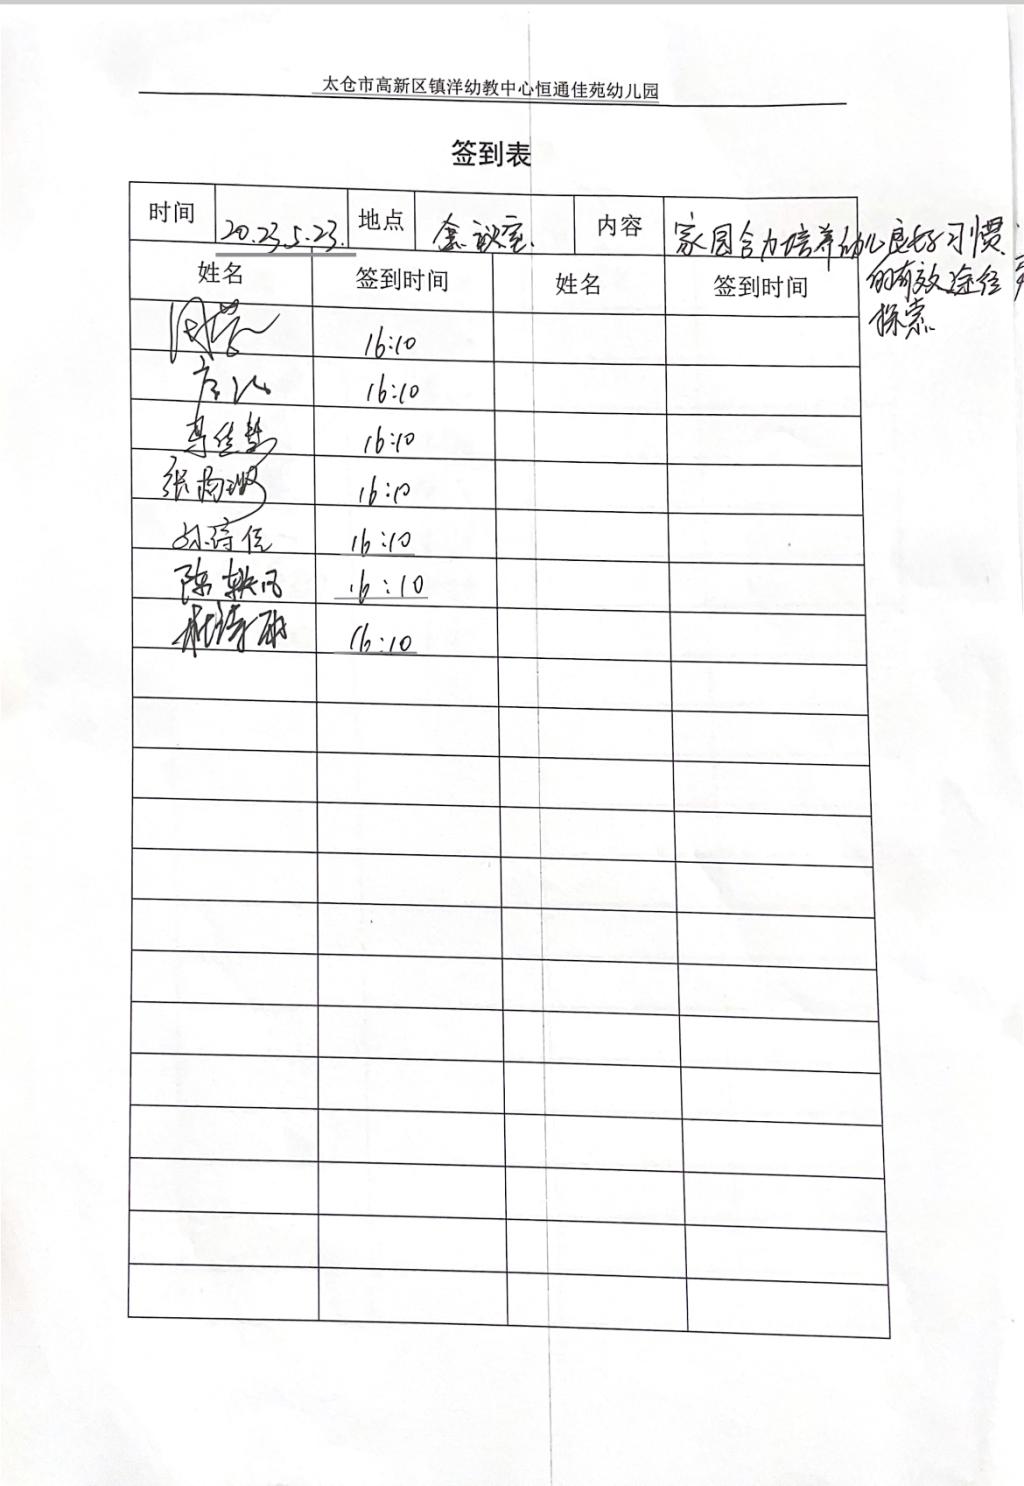 太仓市高新区镇洋幼教中心恒通佳苑幼儿园
签到表
时间 2023.5.23. 地点 会议室. 内容 家园合力培养幼儿良好习惯
的有效途径
探索
姓名 签到时间 姓名 签到时间
16:10
16:10
佳 16:10
张 16:10
孙 16:10
陈 16:10
杜诗雨 16:10